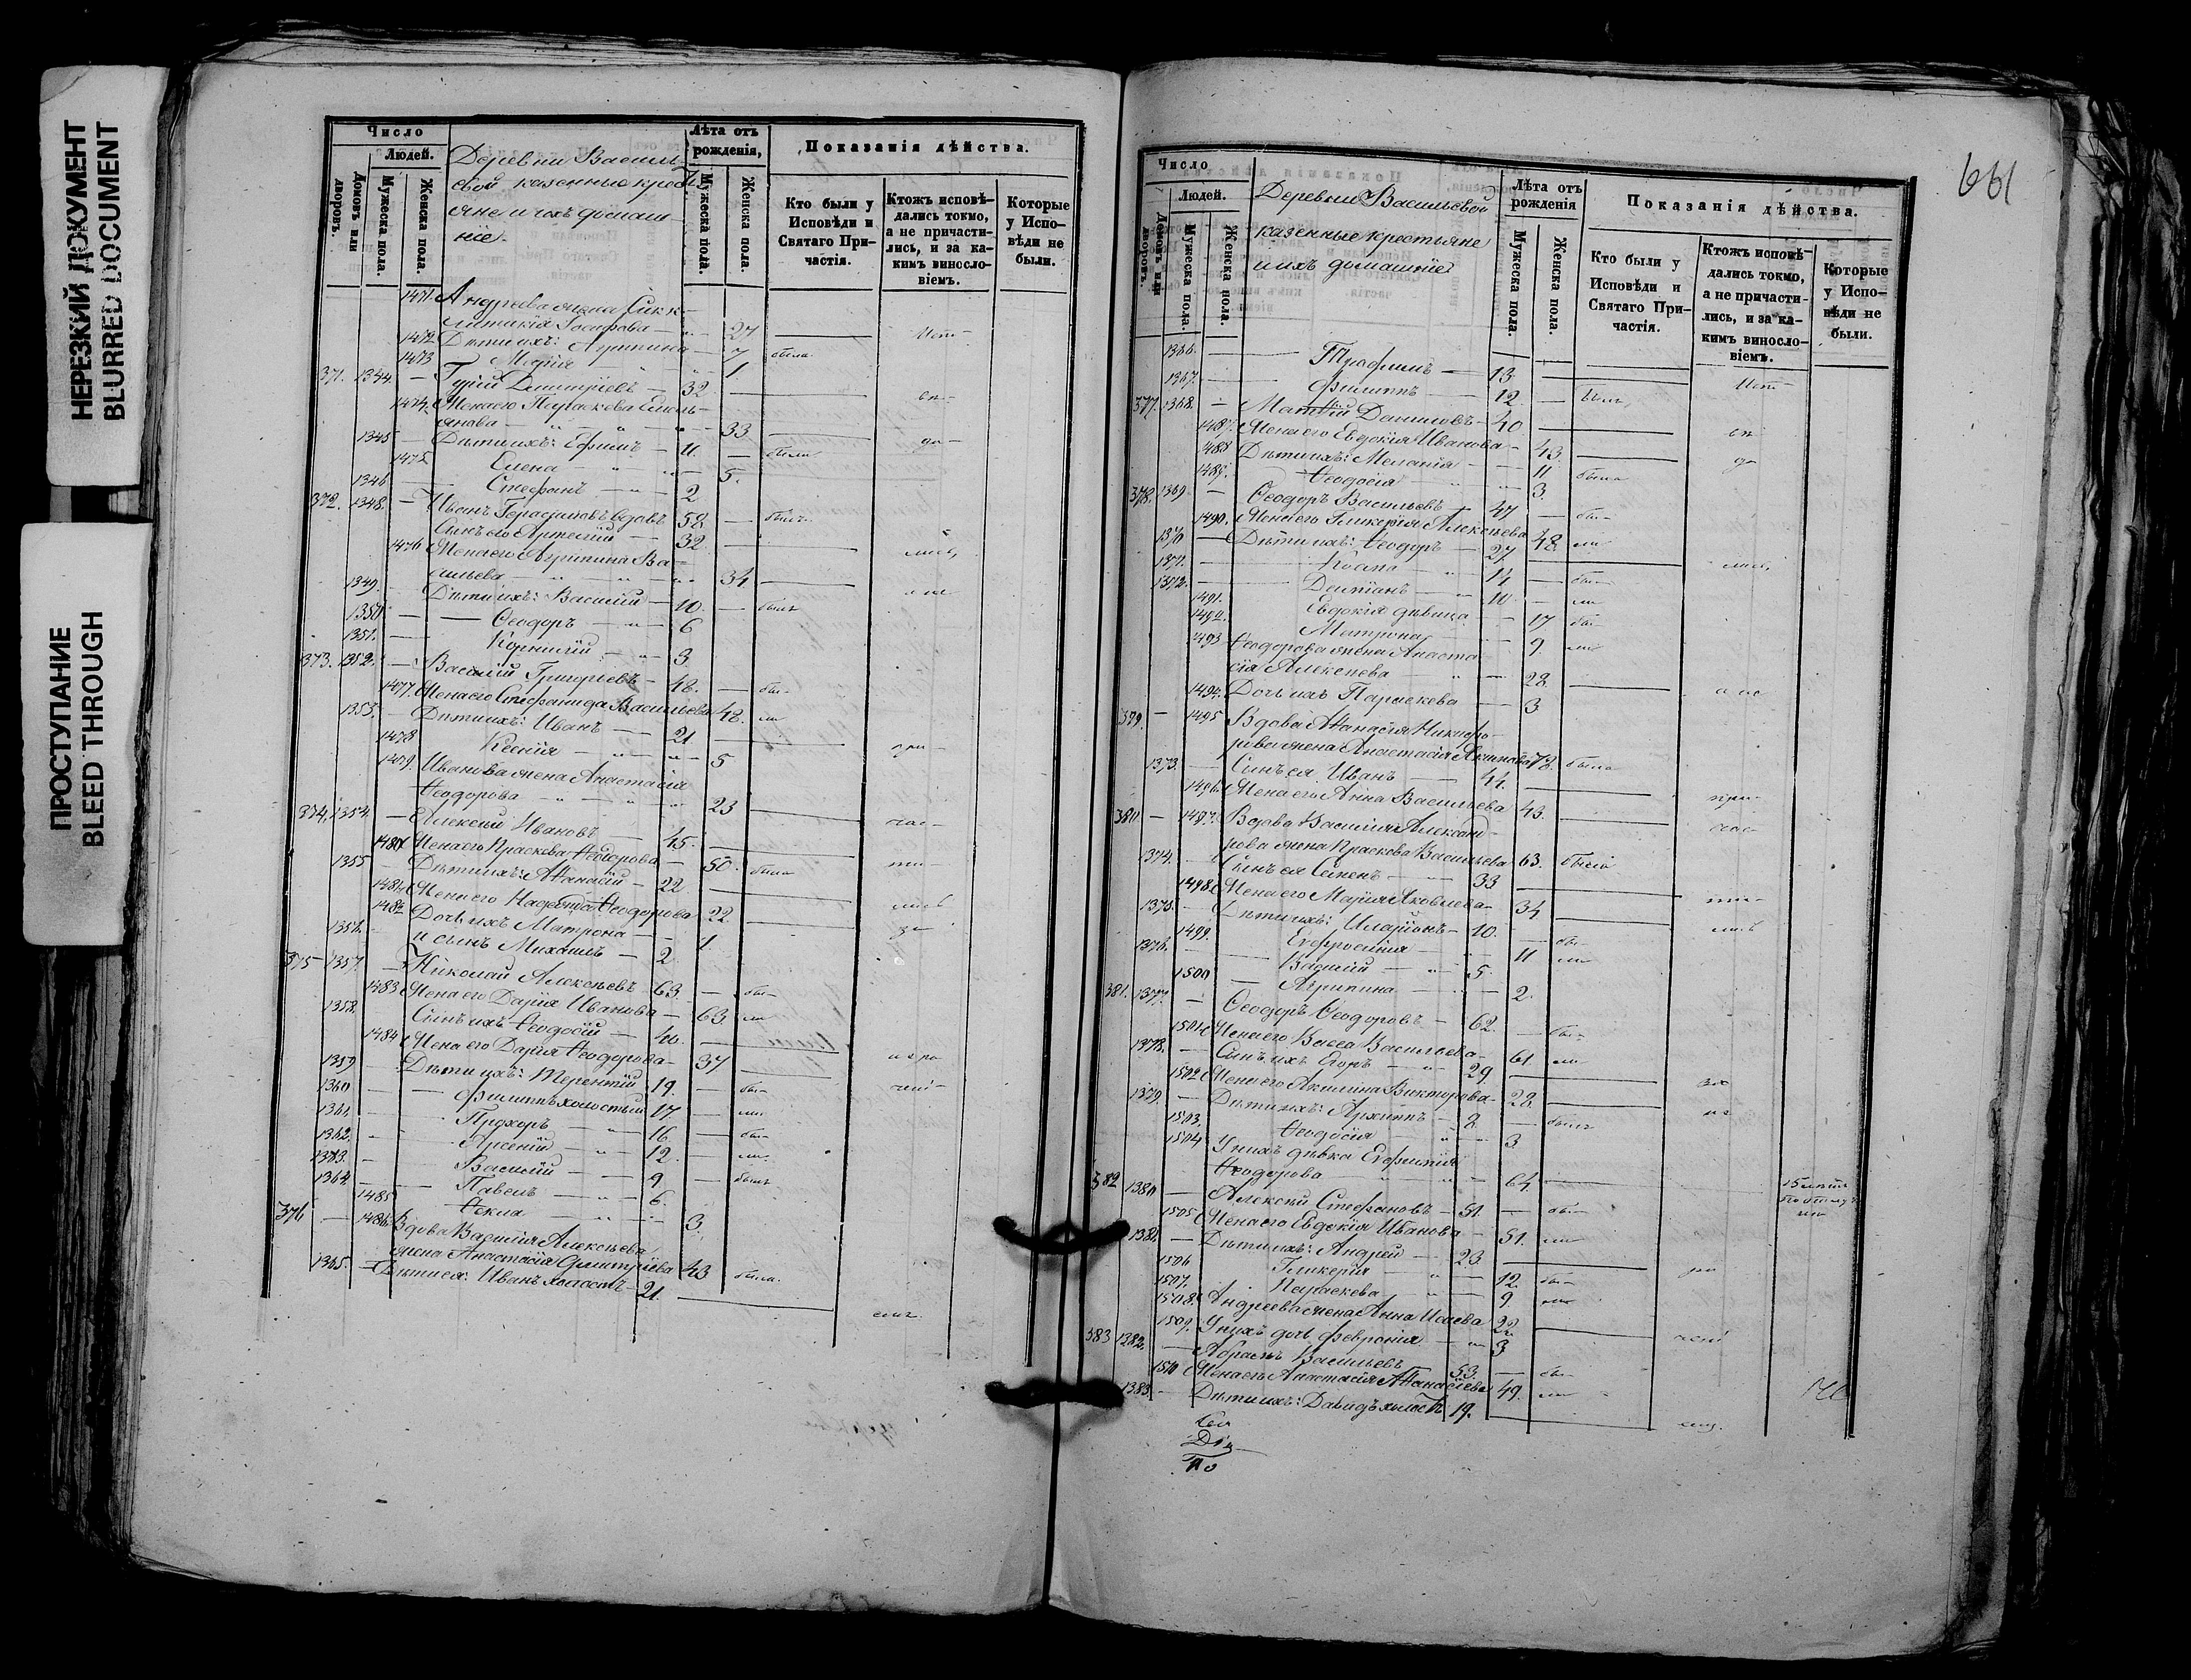 НЕРЕЗКИЙ ДОКУМЕНТ
BLURRED DOCUMENT
ПРОСТУПАНИЕ
BLEED THROUGH
Число
Людей.
Домовъ или дворовъ.
Мужеска пола.
Женска пола.
Деревни Василь-
евой казенные крест
яне и ихъ домаш-
ніе
Лѣта отъ рожденія,
Мужеска пола.
Женска пола.
Показанія дѣйства.
Кто были у Исповѣди и Святаго При-частія.
Ктожъ исповѣ-дались токмо, а не причасти-лись, и за ка-кимъ виносло-віемъ.
Которые у Испо-вѣди не были.
1471. Андреева жена
27
1472. Дѣти ихъ: Агрипина 7 была
1473 Марія 1
371. 1344. — Гурій Дмитріевъ — 32
1474. Жена его Параскева Емель-
янова 33
1345 — Дѣти ихъ: Ефимъ — 11 — были
1475 Елена — 5.
1346 — Стефанъ — 2
372. 1348. — Иванъ Герасимовъ вдовъ 58 — былъ
Сынъ его Артемій — 32
1476 Жена его Агрипина Ва-
сильева — 34
1349. — Дѣти ихъ: Василій — 10 — былъ
1350 — Ѳеодоръ — 6
1351. — Корнилій — 3
373. 1352. — Василій Григорьевъ — 48. — бы-
1477. Жена его Стефанида Васильева 48. ли
1353. — Дѣти ихъ: Иванъ — 21
1478 Ксенія — 5
1479. Иванова жена Анастасія
Ѳеодорова — 23
374. 1354. — Алексѣй Ивановъ — 45.
1480 Жена его Праскева Ѳеодорова — 50. была
1355 — Дѣти ихъ: Аѳанасій — 22
1481. Жена его Надежда Ѳеодорова 22
1482 Дочь ихъ Матрона — 1.
1356. и сынъ Михаилъ — 2
375 1357. — Николай Алексѣевъ — 63 — бы-
1483 Жена его Дарія Иванова — 63. ли
1358. Сынъ ихъ Ѳеодосій — 40.
1484 Жена его Дарія Ѳеодорова — 37
1359 — Дѣти ихъ: Терентій 19. — бы-
1360 — Филиппъ холостый 17. — ли
1361. — Прохоръ — 16 — бы-
1362. — Арсеній — 12. — ли.
1363. — Василій — 9 — былъ
1364. — Павелъ — 6.
1485 Ѳекла — 3.
376 — 1486. Вдова Василія Алексѣева
жена Анастасія Дмитріева 43 была.
1365. — Дѣти ея: Иванъ холостъ — 21.
661
Число
Людей.
Домовъ или дворовъ.
Мужеска пола.
Женска пола.
Деревни Васильевой
казенные крестьяне
и ихъ домашніе
Лѣта отъ рожденія
Мужеска пола.
Женска пола.
Показанія дѣйства.
Кто были у Исповѣди и Святаго При-частія.
Ктожъ исповѣ-дались токмо, а не причасти-лись, и за ка-кимъ виносло-віемъ.
Которые у Испо-вѣди не были.
1366. — Трофимъ — 13
1367. — Филиппъ — 12 — былъ
377. 1368. — Матвѣй Даниловъ — 40
1487. Жена его Евдокія Иванова — 43.
1488 Дѣти ихъ: Меланія — 11 была
1489. Ѳеодосія — 3.
378. 1369 — Ѳеодоръ Васильевъ — 47 — бы-
1490. Жена его Гликерія Алексѣева 48. ли
1370 — Дѣти ихъ: Ѳеодоръ — 27
1371. — Козма — 14 — бы-
1372. — Даміанъ — 10 — ли
1491. Евдокія дѣвица — 17 бы-
1492. Матрона — 9. ли
1493 Ѳеодорова жена Анаста-
сія Алексѣева — 28.
1494. Дочь ихъ Параскева — 3
379 — 1495 Вдова Аѳанасія Никифо-
рова жена Анастасія 73. была
1373. — Сынъ ея Иванъ — 44.
1496. Жена его Анна Васильева 43.
380 — 1497. Вдова Василія Александ-
рова жена Праскева Васильева 63. была
1374. — Сынъ ея Семенъ — 33
1498. Жена его Марія Яковлева — 34
1375. — Дѣти ихъ: Иларіонъ — 10. — бы-
1499. Евфросинія — 11 ли
1376. — Василій — 5.
1500 — Агрипина — 2.
381. 1377. — Ѳеодоръ Ѳеодоровъ — 62. — бы-
1501. Жена его Васса Васильева — 61 ли
1378. — Сынъ ихъ Егоръ — 29.
1502 Жена его Акилина Викторова — 28.
1379. — Дѣти ихъ: Архиппъ — 2 — былъ
1503. Ѳеодосія — 3
1504. У нихъ дѣвка Евфимія
Ѳеодорова — 64.
382 1380 — Алексѣй Стефановъ — 51. — бы-
1505 Жена его Евдокія Иванова — 51. ли
1381. — Дѣти ихъ: Андрей — 23.
1506 Гликерія — 12. бы-
1507. Параскева — 9 ли
1508. Андреева жена Анна Исаева 22
1509. У нихъ дочь Феврониа — 3
383 1382. — Абрамъ Васильевъ 53. — бы-
1510 Жена его Анастасія Аѳанасіева 49. ли
1383. — Дѣти ихъ: Давидъ холостъ 19.